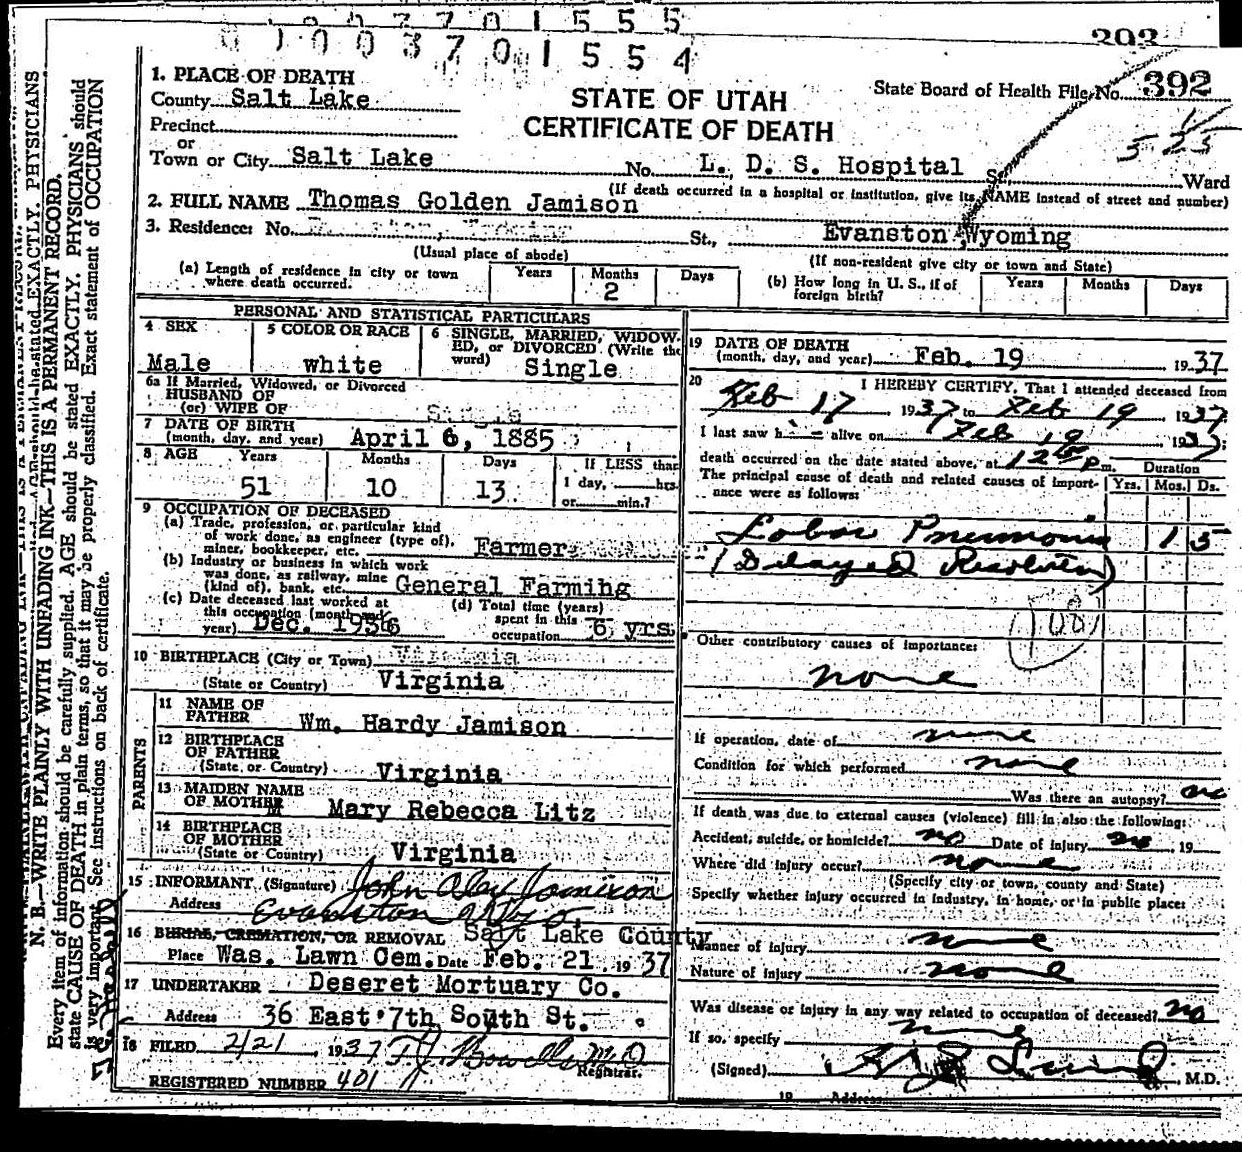 0 0 3 7 0 1 5 5 5
0 1 0 0 3 7 0 1 5 5 4
392
1. PLACE OF DEATH
County Salt Lake
Precinct
or
Town or City Salt Lake
STATE OF UTAH
CERTIFICATE OF DEATH
State Board of Health File No. 392
No. L. D. S. Hospital St., Ward
(If death occurred in a hospital or institution, give its NAME instead of street and number)
2. FULL NAME Thomas Golden Jamison
3. Residence: No. St., Evanston, Wyoming
(Usual place of abode)
(If non-resident give city or town and State)
(a) Length of residence in city or town where death occurred. Years Months 2 Days
(b) How long in U. S., if of foreign birth? Years Months Days
PERSONAL AND STATISTICAL PARTICULARS
4 SEX Male
5 COLOR OR RACE white
6 SINGLE, MARRIED, WIDOWED, or DIVORCED (Write the word) Single
6a If Married, Widowed, or Divorced
HUSBAND OF
(or) WIFE OF Single
7 DATE OF BIRTH
(month, day, and year) April 6, 1885
8 AGE Years 51 Months 10 Days 13 If LESS than 1 day, hrs. or min.?
9 OCCUPATION OF DECEASED
(a) Trade, profession, or particular kind
of work done, as engineer (type of),
miner, bookkeeper, etc. Farmer
(b) Industry or business in which work
was done, as railway, mine
(kind of), bank, etc. General Farming
(c) Date deceased last worked at
this occupation (month and
year) Dec. 1936
(d) Total time (years)
spent in this
occupation 6 yrs.
10 BIRTHPLACE (City or Town) Virginia
(State or Country) Virginia
PARENTS
11 NAME OF
FATHER Wm. Hardy Jamison
12 BIRTHPLACE
OF FATHER
(State or Country) Virginia
13 MAIDEN NAME
OF MOTHER Mary Rebecca Litz
14 BIRTHPLACE
OF MOTHER
(State or Country) Virginia
15 INFORMANT (Signature) John Jamison
Address Evanston Wyo.
16 BURIAL, CREMATION, OR REMOVAL Salt Lake County
Place Was. Lawn Cem. Date Feb. 21 1937
17 UNDERTAKER Deseret Mortuary Co.
Address 36 East 7th South St.
18 FILED 2/21, 1937 M D
Registrar.
REGISTERED NUMBER 401
19 DATE OF DEATH
(month, day, and year) Feb. 19 1937
20 I HEREBY CERTIFY, That I attended deceased from
Feb 17 1937 to Feb 19, 1937
I last saw h alive on Feb 19 1937;
death occurred on the date stated above, at 12 p m.
The principal cause of death and related causes of importance were as follows:
Duration
Yrs. Mos. Ds.
Lobar Pneumonia 1 5
(Delayed Resolution)
108
Other contributory causes of importance:
none
If operation, date of none
Condition for which performed none
Was there an autopsy? no
If death was due to external causes (violence) fill in also the following:
Accident, suicide, or homicide? no Date of injury no 19
Where did injury occur? none
(Specify city or town, county and State)
Specify whether injury occurred in industry, in home, or in public place:
Manner of injury none
Nature of injury none
Was disease or injury in any way related to occupation of deceased? no
If so, specify none
(Signed) , M.D.
19 Address
N. B.—WRITE PLAINLY WITH UNFADING INK—THIS IS A PERMANENT RECORD.
Every item of information should be carefully supplied. AGE should be stated EXACTLY. PHYSICIANS should
state CAUSE OF DEATH in plain terms, so that it may be properly classified. Exact statement of OCCUPATION
is very important. See instructions on back of certificate.